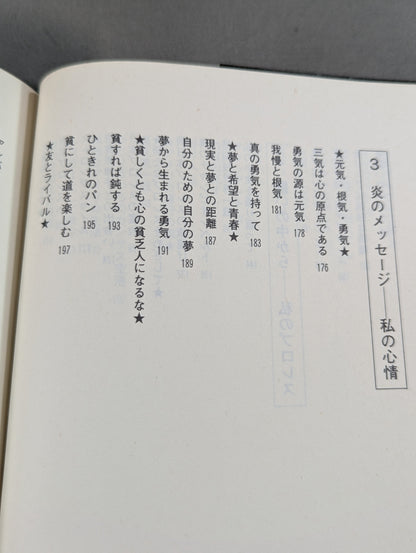 3 炎のメッセージ──私の心情
★元気・根気・勇気★
三気は心の原点である 176
勇気の源は元気 178
我慢と根気 181
真の勇気を持って 183
★夢と希望と青春★
現実と夢との距離 187
自分のための自分の夢 189
夢から生まれる勇気 191
★貧しくとも心の貧乏人になるな★
貧すれば鈍する 193
ひときれのパン 195
貧にして道を楽しむ 197
★友とライバル★